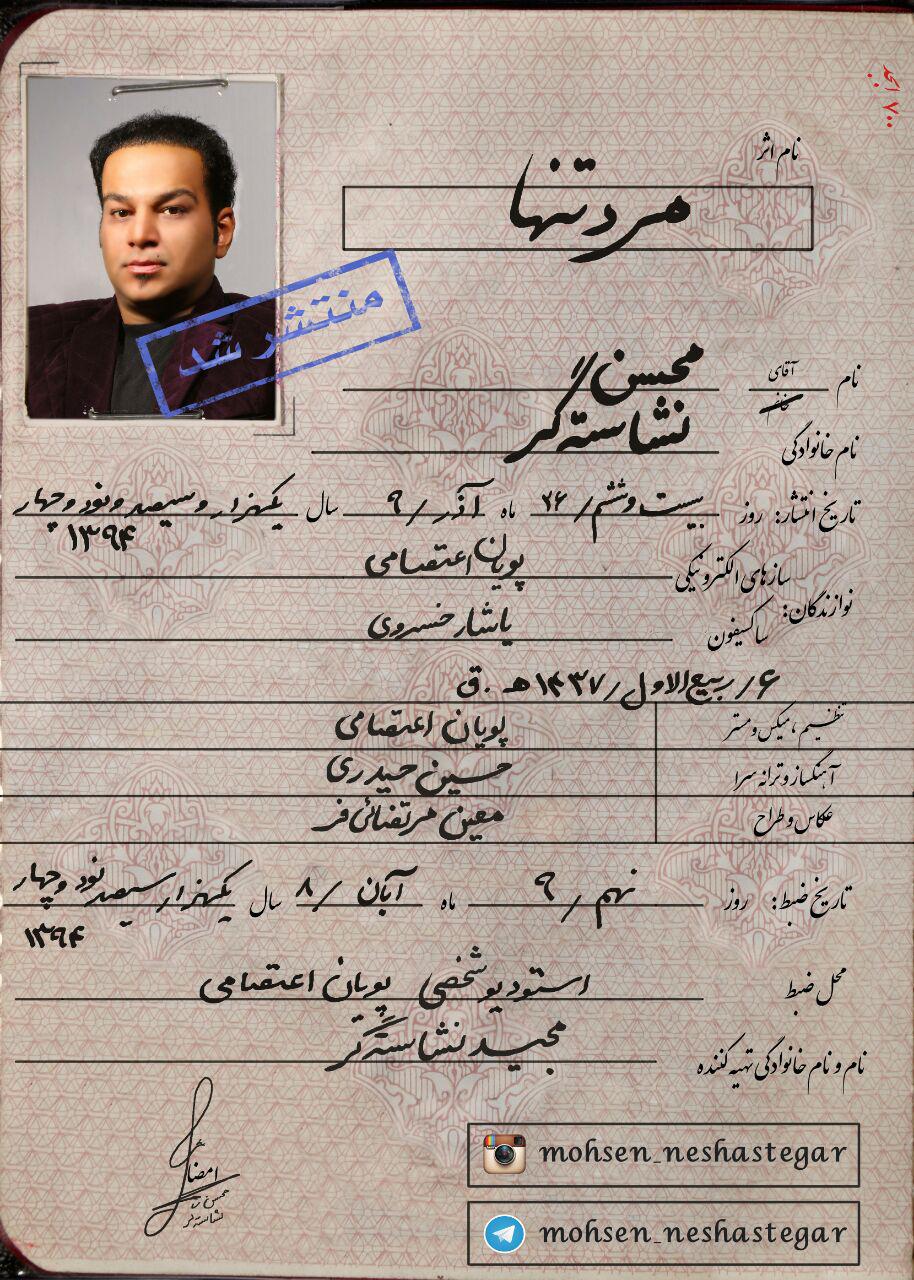 ۷۰۰ انجم
نام اثر
مرد تنها
منتشر شد
نام آقای محسن
خانم
نام خانوادگی نشاسته‌گر
تاریخ انتشار: روز بیست و ششم / ۲۶ ماه آذر / ۹ سال یکهزار و سیصد و نود و چهار
۱۳۹۴
سازهای الکترونیکی پویان اعتصامی
نوازندگان:
ساکسیفون یاشار خسروی
۶ / ربیع الاول / ۱۴۳۷ هـ . ق
تنظیم ، میکس و مستر پویان اعتصامی
آهنگساز و ترانه سرا حسین حیدری
عکاس و طراح معین مرتضائی فر
تاریخ ضبط: روز نهم / ۹ ماه آبان / ۸ سال یکهزار سیصد نود و چهار
۱۳۹۴
محل ضبط استودیو شخصی پویان اعتصامی
نام و نام خانوادگی تهیه کننده مجید نشاسته‌گر
امضا
محسن
نشاسته گر
mohsen_neshastegar
mohsen_neshastegar